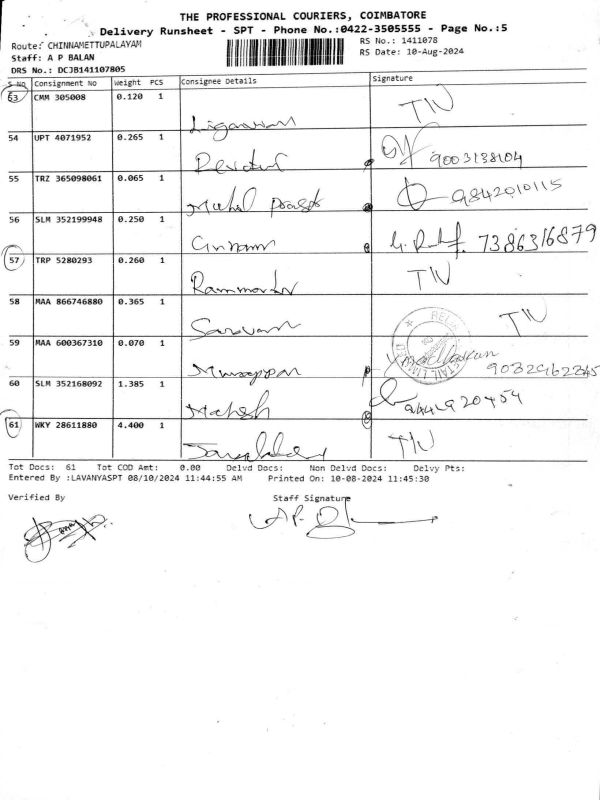 THE PROFESSIONAL COURIERS, COIMBATORE
Delivery Runsheet - SPT - Phone No.:0422-3505555 - Page No.:5
Route: CHINNAMETTUPALAYAM RS No.: 1411078
Staff: A P BALAN RS Date: 10-Aug-2024
DRS No.: DCJB141107805
S No Consignment No Weight PCS Consignee Details Signature
53 CMM 305008 0.120 1 TIN
54 UPT 4071952 0.265 1 9003138104
55 TRZ 365098061 0.065 1 9842010115
56 SLM 352199948 0.250 1 7386316879
57 TRP 5280293 0.260 1 TIN
58 MAA 866746880 0.365 1 Saravam TIN
59 MAA 600367310 0.070 1 Murugappan
60 SLM 352168092 1.385 1 Mahesh
61 WKY 28611880 4.400 1 TIN
Tot Docs: 61 Tot COD Amt: 0.00 Delvd Docs: Non Delvd Docs: Delvy Pts:
Entered By :LAVANYASPT 08/10/2024 11:44:55 AM Printed On: 10-08-2024 11:45:30
Verified By Staff Signature